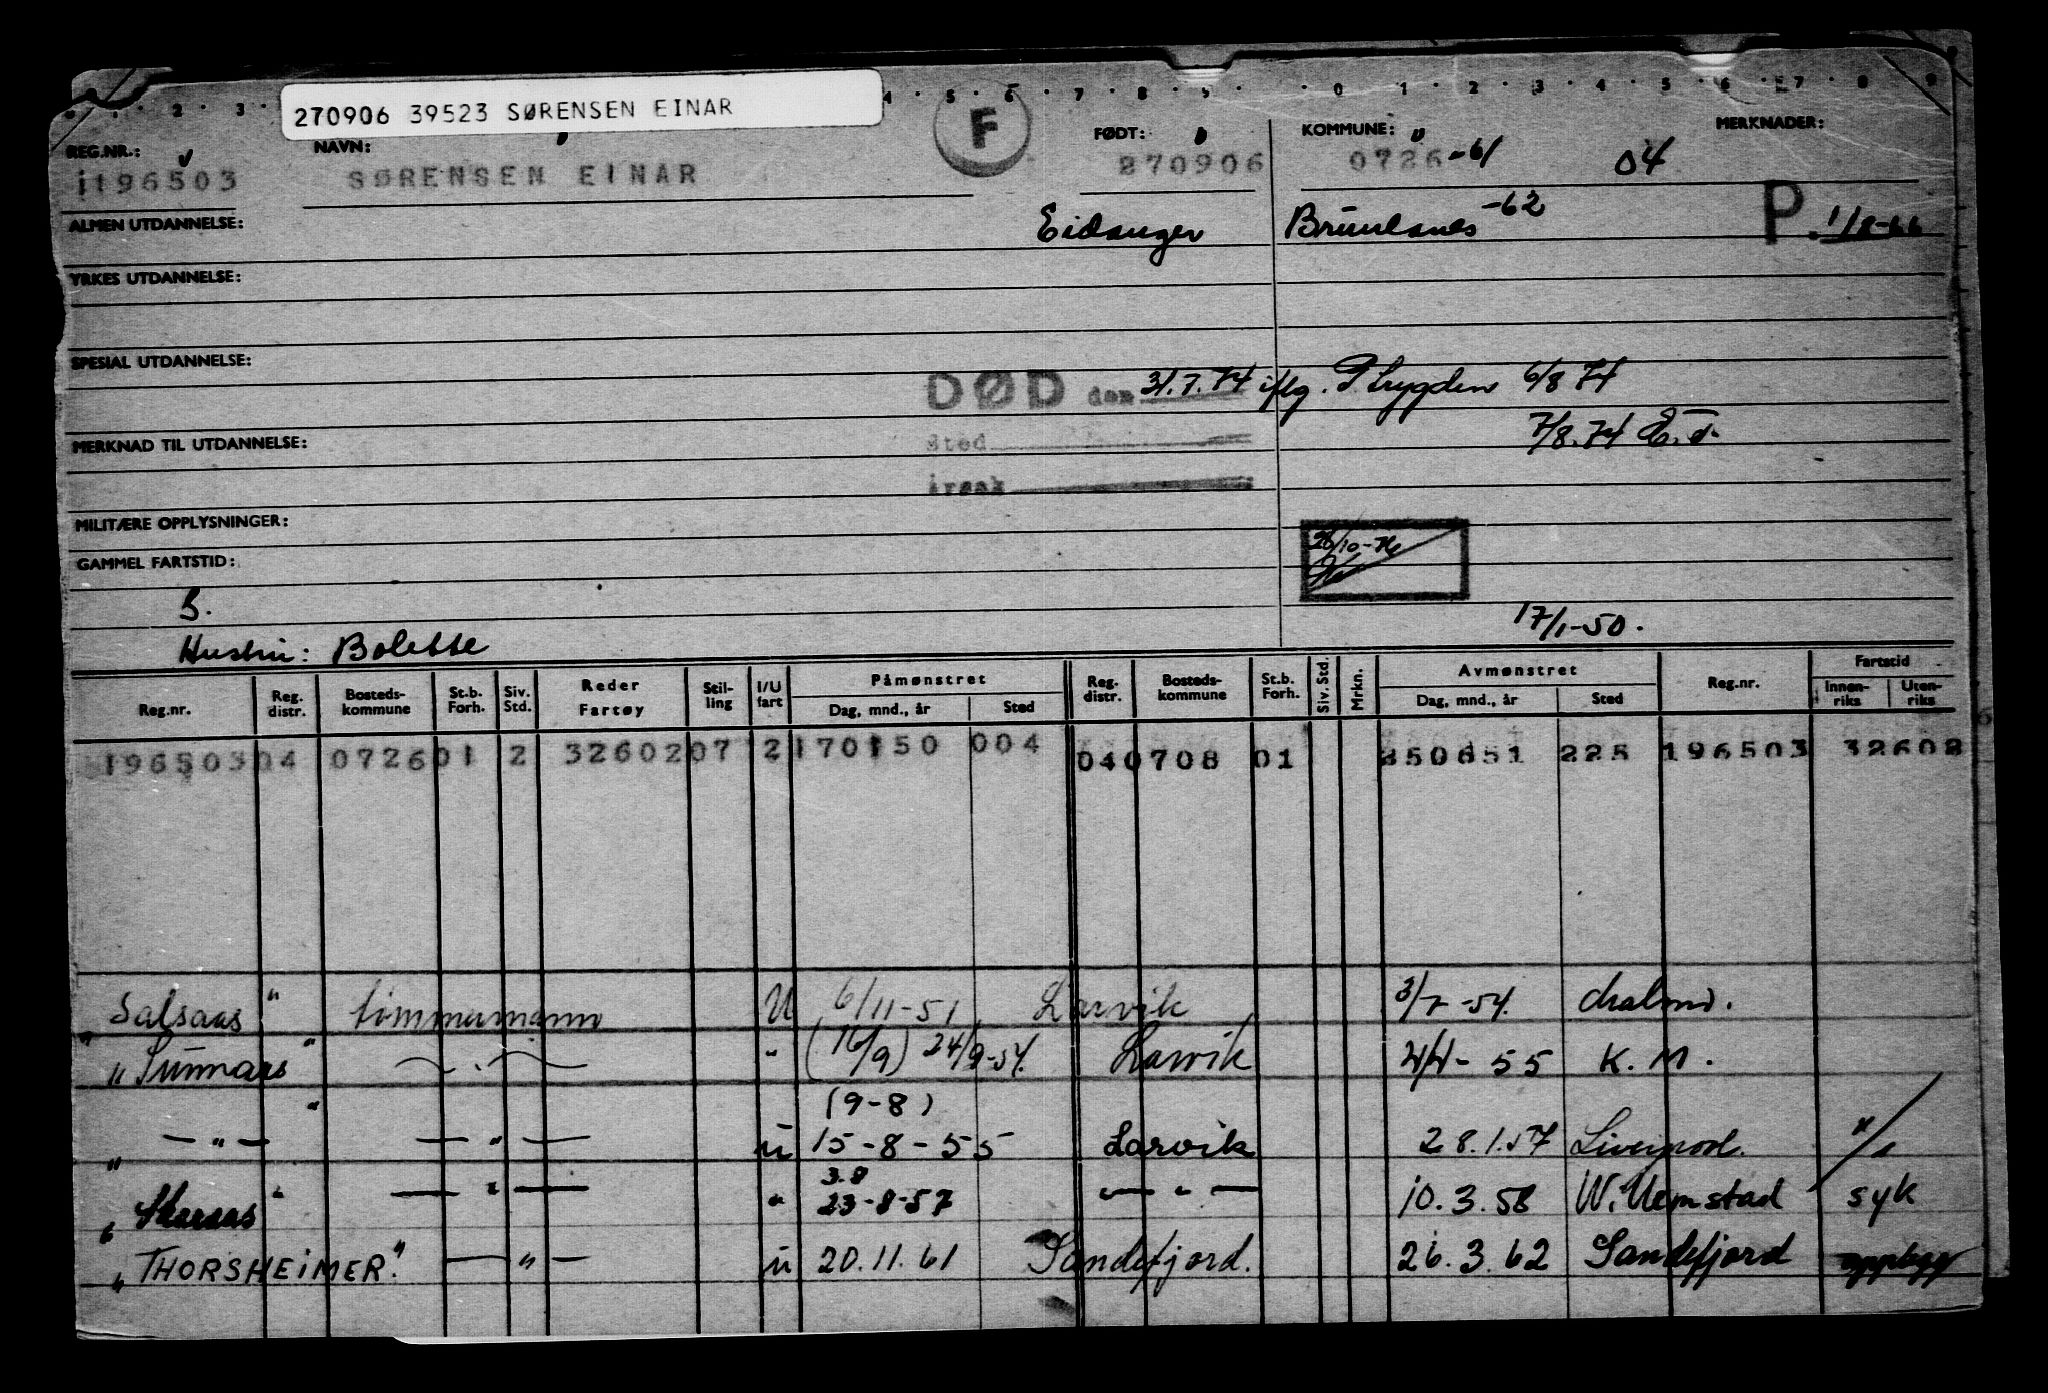 2 3 4 5 6 7 8 9 0 1 2 3 4 5 6 7 8 9
270906 39523 SØRENSEN EINAR
F
REG.NR.: NAVN: FØDT: KOMMUNE: MERKNADER:
196503 SØRENSEN EINAR 270906 0726 -61 04
ALMEN UTDANNELSE: Eidanger Brunlanes -62 P. 1/8-66
YRKES UTDANNELSE:
SPESIAL UTDANNELSE:
DØD den 31.7.74 iflg. P. trygden 6/8 74
MERKNAD TIL UTDANNELSE: sted 7/8.74
årsak
MILITÆRE OPPLYSNINGER:
GAMMEL FARTSTID:
S. 17/1-50.
Hustru: Bolette
Reg.nr. Reg. distr. Bosteds- kommune St.b. Forh. Siv. Std. Reder Fartøy Stil- ling I/U fart Påmønstret Dag, mnd., år Sted Reg. distr. Bosteds- kommune St.b. Forh. Siv. Std. Mrkn. Avmønstret Dag, mnd., år Sted Reg.nr. Fartstid Innen- riks Uten- riks
196503 04 0726 01 2 32602 07 2 170150 004 040708 01 250651 225 196503 32602
Salsaas " tømmermann U 6/11-51 Larvik 3/7-54.
" Sunnaas " " (16/9) 24/9-54. Larvik 4/4-55 K. M.
(9-8)
" — " — " — " — u 15-8-55 Larvik 28.1.57 Liverpool.
3.8
" Skaraas " — " — " 23-8-57 — " — 10.3.58 W. Uemstad syk
" THORSHEIMER." — " — u 20.11.61 Sandefjord. 26.3.62 Sandefjord opplegg